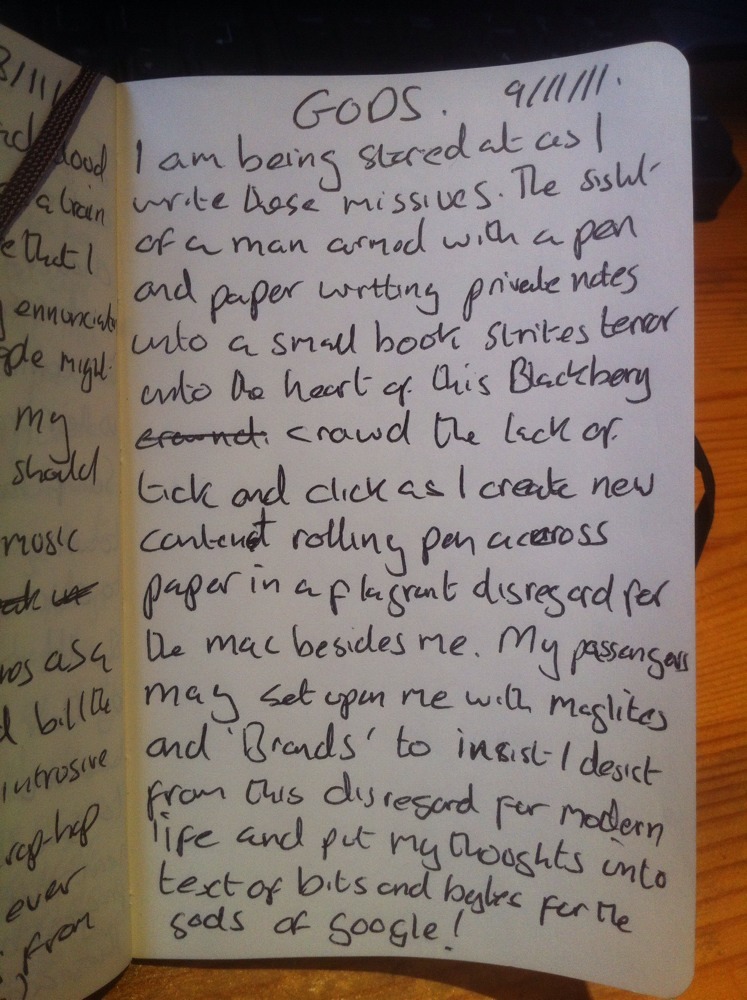 3/11/1
ood
a train
e that I
ennunciat
ople might
my
should
music
as a
d bill the
intrusive
rap-hop
ever
from
GODS. 9/11/11.
I am being stared at as I
write these missives. The sight
of a man armed with a pen
and paper writting private notes
into a small book strikes terror
into the heart of this Blackbery
crowd the lack of
tick and click as I create new
content rolling pen accross
paper in a flagrant disregard for
the mac besides me. My passengers
may set upon me with maglites
and 'Brands' to insist I desict
from this disregard for modern
life and put my thoughts into
text of bits and bytes for the
gods of google!